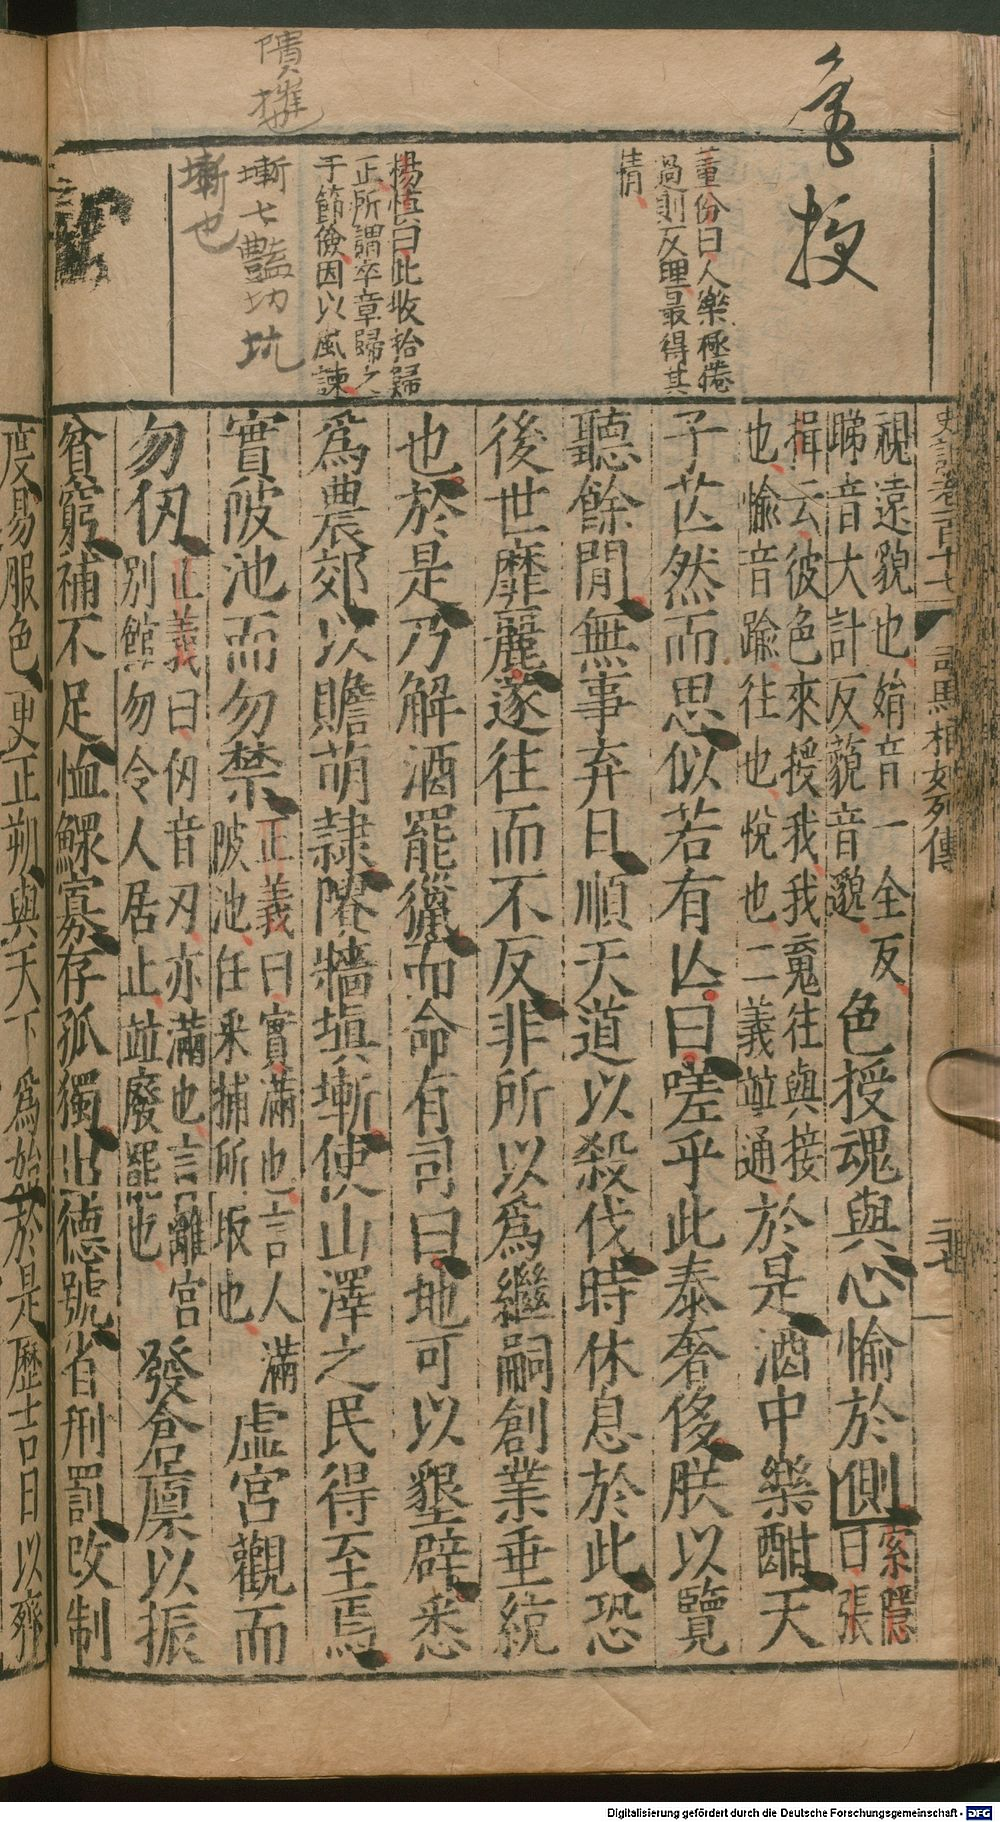 隤摧
色
授
董份曰人樂極倦
過則反理最得其
情
楊慎曰此收拾歸
正所謂卒章歸之
于節儉因以風諫
塹七豔切坑
塹也
史記卷一百十七
司馬相如列傳
視遠貌也娟音一全反
睇音大計反藐音邈
色授魂與心愉於側
索隱
曰張
揖云彼色來授我我䰟往與接
也愉音踰往也悅也二義並通
於是酒中樂酣天
子芒然而思似若有亾曰嗟乎此泰奢侈朕以覽
聽餘閒無事弃日順天道以殺伐時休息於此恐
後世靡麗遂往而不反非所以爲繼嗣創業垂統
也於是乃解酒罷獵而命有司曰地可以墾辟悉
爲農郊以贍萌隸隤牆塡塹使山澤之民得至焉
實陂池而勿禁
正義曰實滿也言人滿
陂池任采捕所取也
虛宮觀而
勿仞
正義曰仞音刃亦滿也言離宮
別館勿令人居止並廢罷也
發倉廩以振
貧窮補不足恤鰥寡存孤獨出德號省刑罰改制
度易服色更正朔與天下爲始於是歷吉日以齊
Digitalisierung gefördert durch die Deutsche Forschungsgemeinschaft - DFG